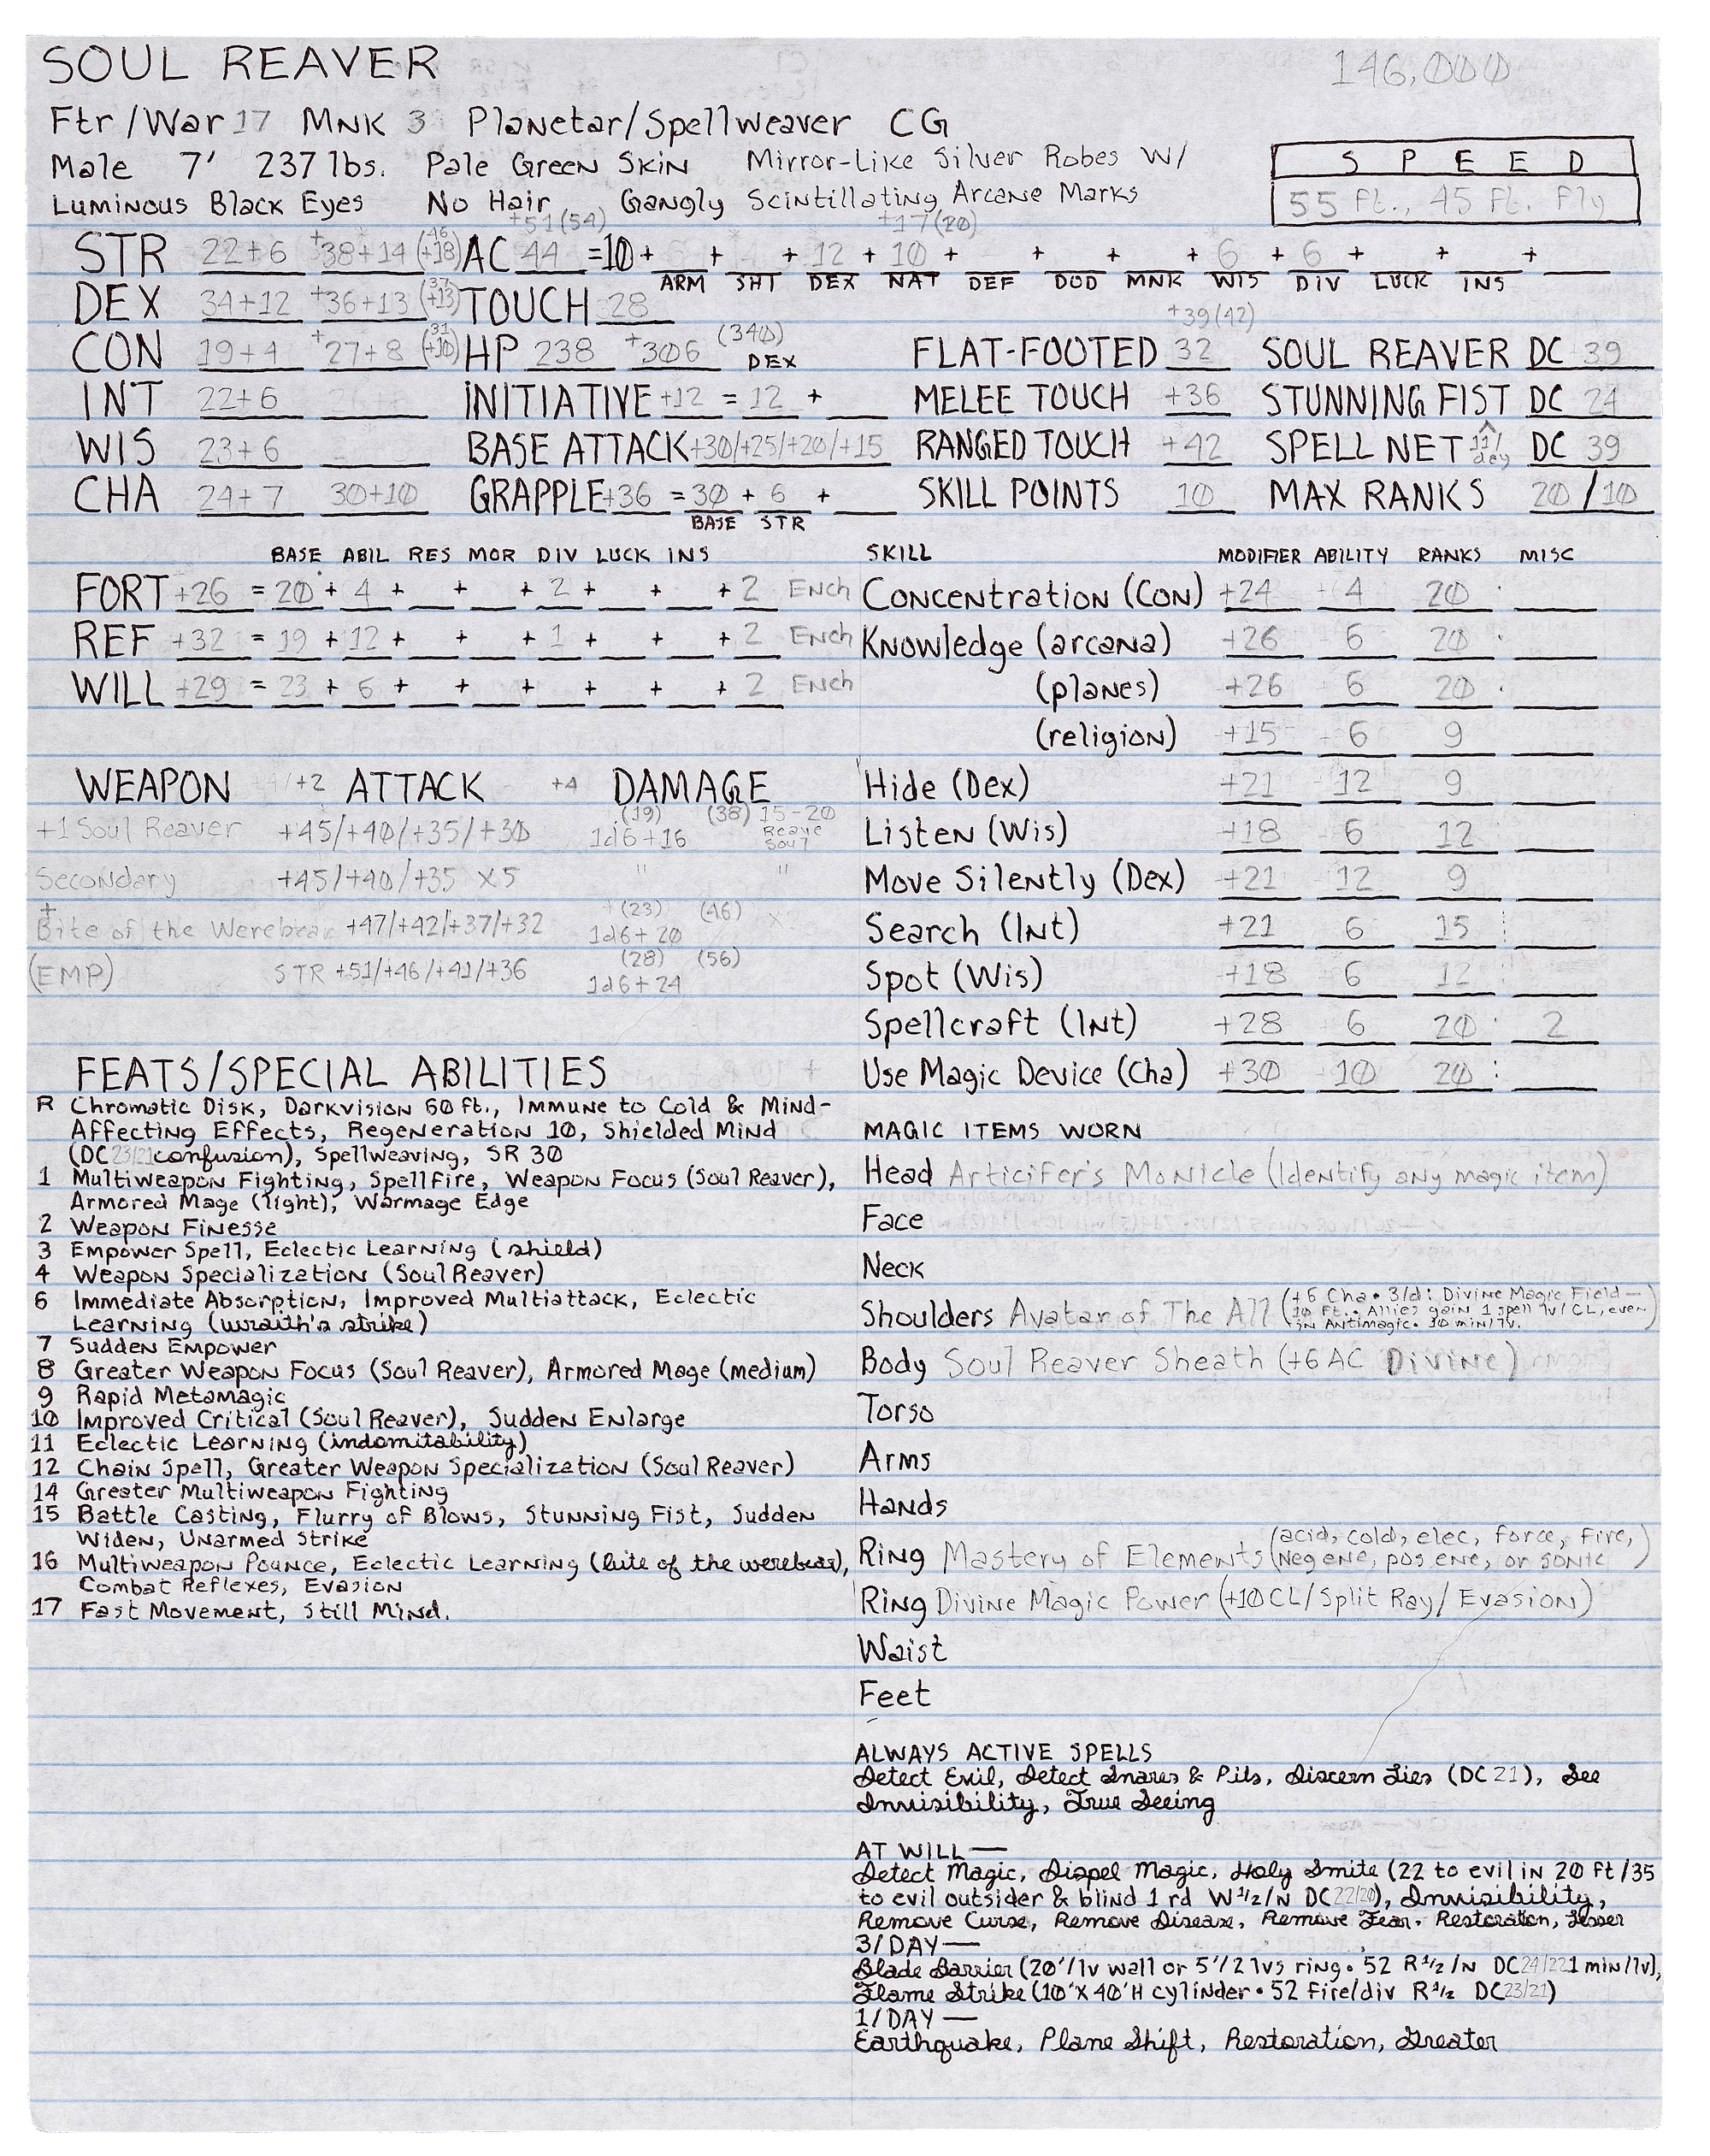 SOUL REAVER 146,000
Ftr/War 17 MNK 3 Planetar/Spellweaver CG
Male 7' 237 lbs. Pale Green Skin Mirror-Like Silver Robes W/
Luminous Black Eyes No Hair Gangly Scintillating Arcane Marks
SPEED
55 ft., 45 ft. Fly
+51(54) +17(20)
STR 22+6 +38+14 (46 +18) AC 44 =10+ + + 12 + 10 + + + + 6 + 6 + + +
ARM SHT DEX NAT DEF DOD MNK WIS DIV LUCK INS
DEX 34+12 +36+13 (37 +13) TOUCH 28
+39(42)
CON 19+4 +27+8 (31 +10) HP 238 +306 (340) FLAT-FOOTED 32 SOUL REAVER DC 39
DEX
INT 22+6 INITIATIVE +12 = 12 + MELEE TOUCH +36 STUNNING FIST DC 24
WIS 23+6 BASE ATTACK +30/+25/+20/+15 RANGED TOUCH +42 SPELL NET 11/day DC 39
CHA 24+7 30+10 GRAPPLE +36 = 30 + 6 + SKILL POINTS 10 MAX RANKS 20/10
BASE STR
BASE ABIL RES MOR DIV LUCK INS
FORT +26 = 20 + 4 + + + 2 + + + 2 Ench
REF +32 = 19 + 12 + + + 1 + + + 2 Ench
WILL +29 = 23 + 6 + + + + + + 2 Ench
SKILL MODIFIER ABILITY RANKS MISC
Concentration (Con) +24 4 20
Knowledge (arcana) +26 6 20
(planes) +26 6 20
(religion) +15 6 9
Hide (Dex) +21 12 9
Listen (Wis) +18 6 12
Move Silently (Dex) +21 12 9
Search (Int) +21 6 15
Spot (Wis) +18 6 12
Spellcraft (Int) +28 6 20 2
Use Magic Device (Cha) +30 10 20
WEAPON /+2 ATTACK +4 DAMAGE
(19) (38) 15-20
+1 Soul Reaver +45/+40/+35/+30 1d6+16 Reave Soul
Secondary +45/+40/+35 x5 " "
+ (23) (46)
Bite of the Werebear +47/+42/+37/+32 1d6+20
(28) (56)
(EMP) STR +51/+46/+41/+36 1d6+24
FEATS/SPECIAL ABILITIES
R Chromatic Disk, Darkvision 60 ft., Immune to Cold & Mind-
Affecting Effects, Regeneration 10, Shielded Mind
(DC 23/21 confusion), Spellweaving, SR 30
1 Multiweapon Fighting, Spellfire, Weapon Focus (Soul Reaver),
Armored Mage (light), Warmage Edge
2 Weapon Finesse
3 Empower Spell, Eclectic Learning (shield)
4 Weapon Specialization (Soul Reaver)
6 Immediate Absorption, Improved Multiattack, Eclectic
Learning (wraith's strike)
7 Sudden Empower
8 Greater Weapon Focus (Soul Reaver), Armored Mage (medium)
9 Rapid Metamagic
10 Improved Critical (Soul Reaver), Sudden Enlarge
11 Eclectic Learning (indomitability)
12 Chain Spell, Greater Weapon Specialization (Soul Reaver)
14 Greater Multiweapon Fighting
15 Battle Casting, Flurry of Blows, Stunning Fist, Sudden
Widen, Unarmed Strike
16 Multiweapon Pounce, Eclectic Learning (bite of the werebear),
Combat Reflexes, Evasion
17 Fast Movement, Still Mind.
MAGIC ITEMS WORN
Head Articifer's Monicle (Identify any magic item)
Face
Neck
Shoulders Avatar of The All (+6 Cha • 3/d: Divine Magic Field—
10 ft. • Allies gain 1 spell lv/CL, even
in Antimagic • 30 min/lv.)
Body Soul Reaver Sheath (+6 AC Divine)
Torso
Arms
Hands
Ring Mastery of Elements (acid, cold, elec, force, fire,
neg ene, pos ene, or sonic)
Ring Divine Magic Power (+10 CL/Split Ray/Evasion)
Waist
Feet
ALWAYS ACTIVE SPELLS
Detect Evil, Detect Snares & Pits, Discern Lies (DC 21), See
Invisibility, True Seeing
AT WILL—
Detect Magic, Dispel Magic, Holy Smite (22 to evil in 20 ft/35
to evil outsider & blind 1 rd W½/N DC 22/20), Invisibility,
Remove Curse, Remove Disease, Remove Fear, Restoration, Lesser
3/DAY—
Blade Barrier (20'/lv wall or 5'/2 lvs ring • 52 R½/N DC 24/22 1 min/lv),
Flame Strike (10'X40'H cylinder • 52 fire/div R½ DC 23/21)
1/DAY—
Earthquake, Plane Shift, Restoration, Greater